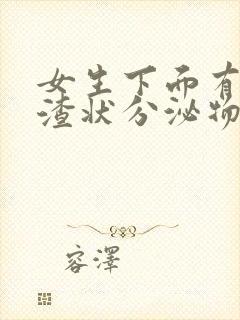 女生下面有
渣状分泌物
容澤